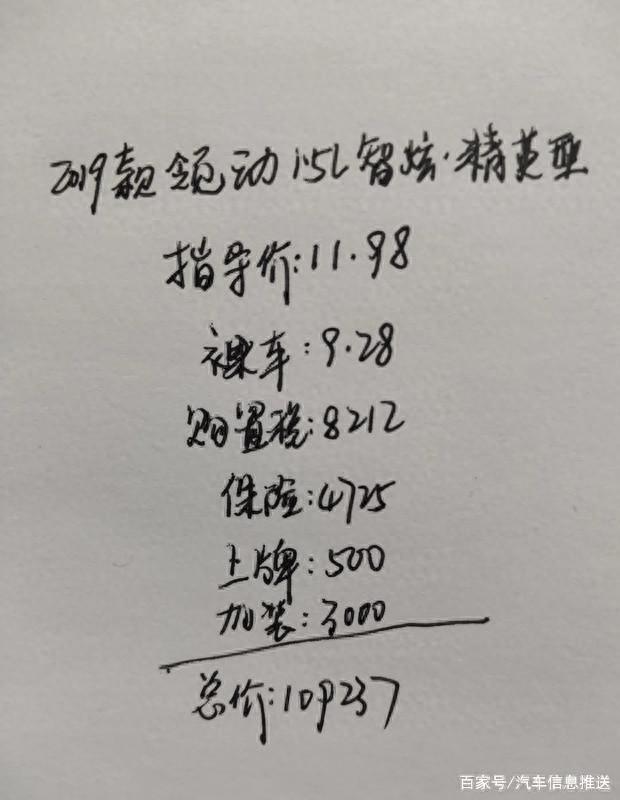 2019款领动1.5L智炫·精英型
指导价:11.98
裸车:9.28
购置税:8212
保险:4725
上牌:500
加装:3000
总价:109237
百家号/汽车信息推送